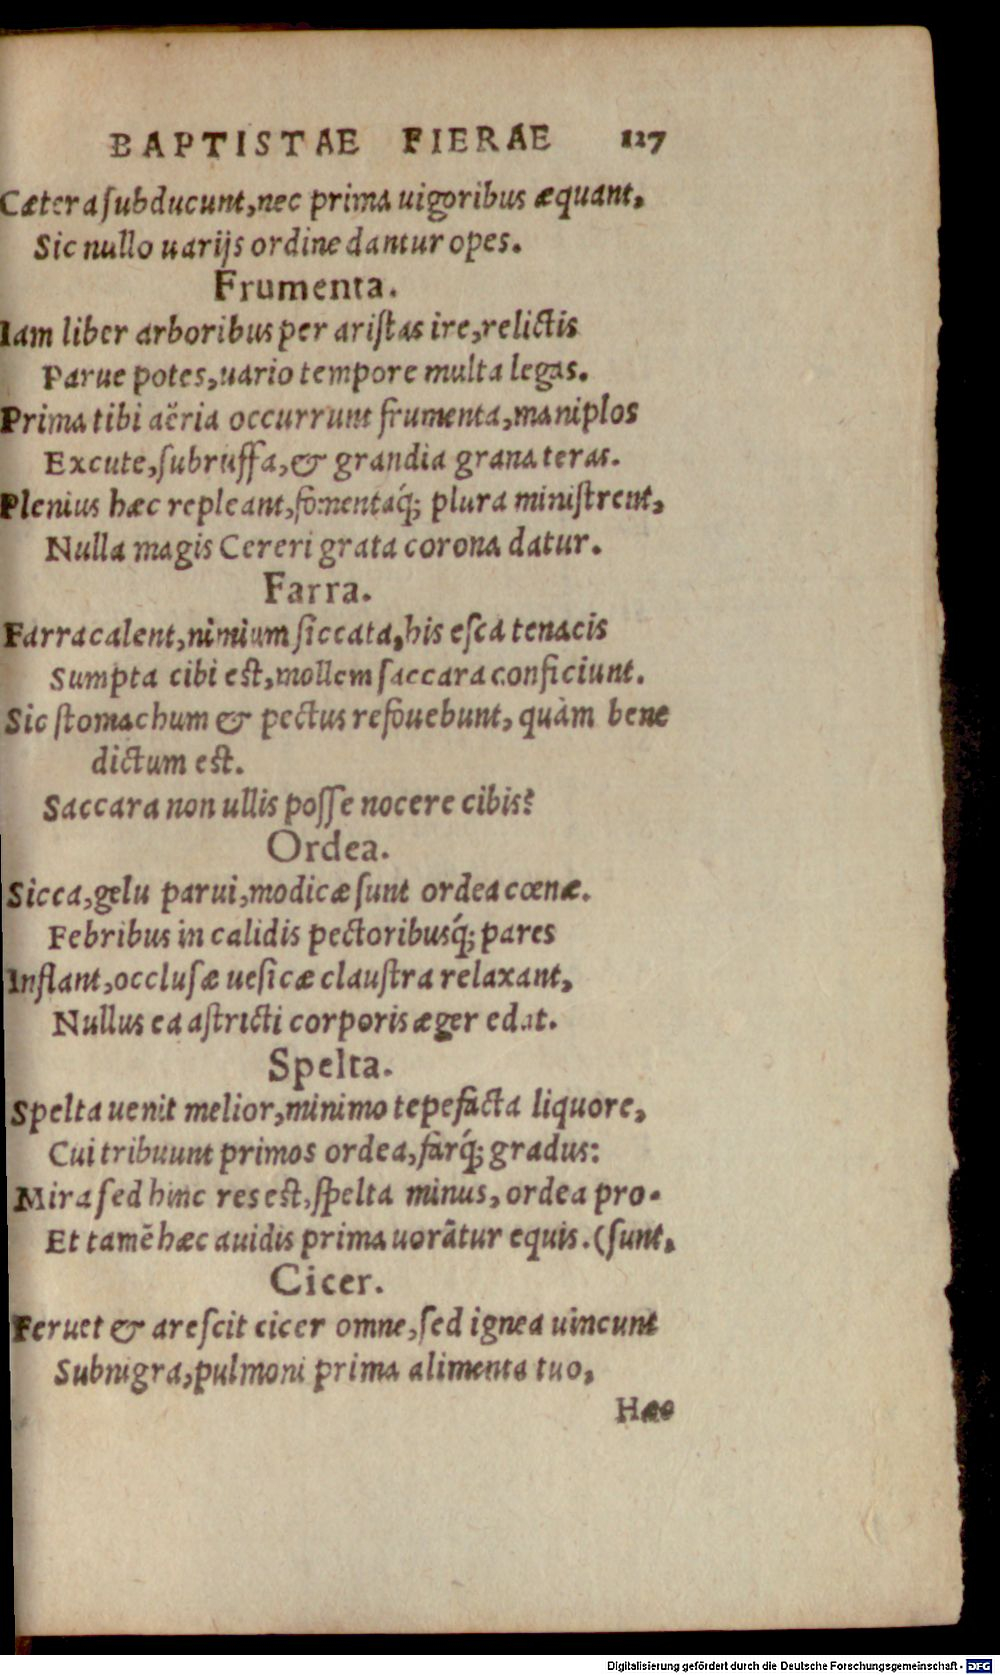 BAPTISTAE FIERAE 127
Cætera ſubducunt, nec prima uigoribus æquant,
Sic nullo uarijs ordine dantur opes.
Frumenta.
Iam liber arboribus per ariſtas ire, relictis
Parue potes, uario tempore multa legas.
Prima tibi aëria occurrunt frumenta, maniplos
Excute, ſubruffa, & grandia grana teras.
Plenius hæc repleant, fomentaq́; plura miniſtrent,
Nulla magis Cereri grata corona datur.
Farra.
Farra calent, nimium ſiccata, his eſca tenacis
Sumpta cibi eſt, mollem ſaccara conficiunt.
Sic ſtomachum & pectus refouebunt, quàm bene
dictum eſt.
Saccara non ullis poſſe nocere cibis?
Ordea.
Sicca, gelu parui, modicæ ſunt ordea cœnæ.
Febribus in calidis pectoribusq́; pares
Inflant, occluſæ ueſicæ clauſtra relaxant,
Nullus ea aſtricti corporis æger edat.
Spelta.
Spelta uenit melior, minimo tepefacta liquore,
Cui tribuunt primos ordea, farq́; gradus:
Mira ſed hinc res eſt, ſpelta minus, ordea pro-
Et tamē hæc auidis prima uorātur equis. (ſunt,
Cicer.
Feruet & areſcit cicer omne, ſed ignea uincunt
Subnigra, pulmoni prima alimenta tuo,
Hæc
Digitalisierung gefördert durch die Deutsche Forschungsgemeinschaft - DFG